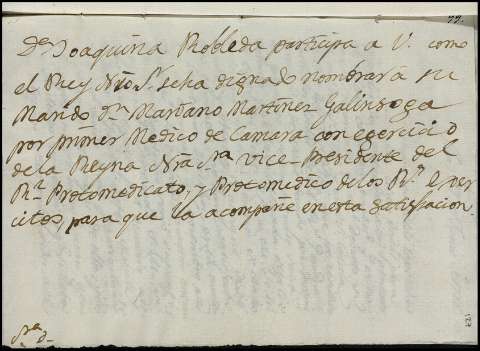 77.
Dª Joaquina Robleda participa a V. como
el Rey Nro Sr. se ha dignado nombrar á su
Marido Dn Mariano Martinez Galinsoga
por primer Medico de Camara con egercicio
de la Reyna Nra Sra vice Presidente del
Rl Protomedicato, y Protomedico de los Rs. Exer
citos, para que la acompañe en esta satisfacion.